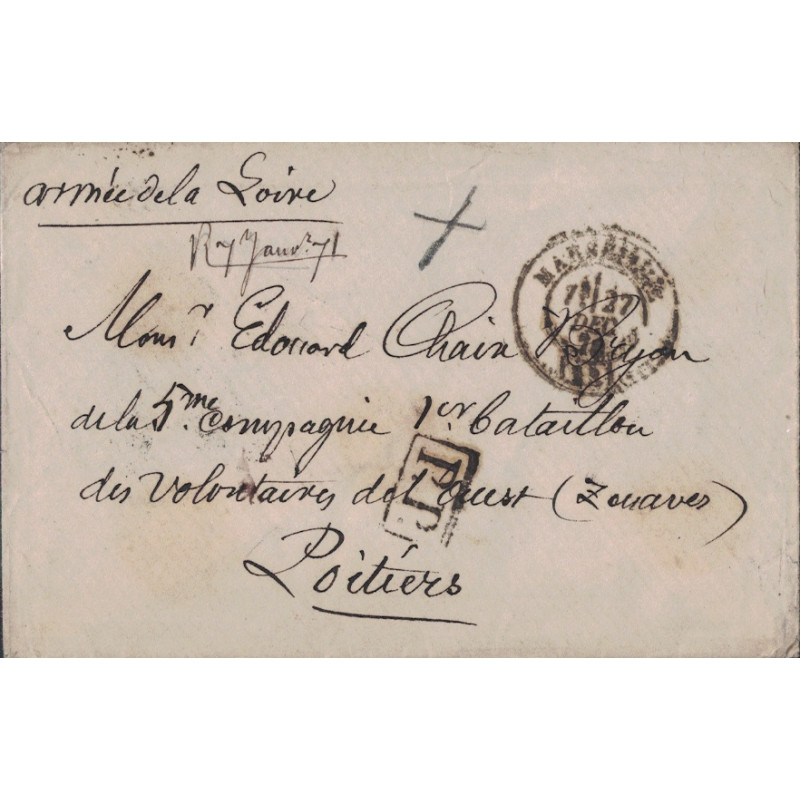 armée de la Loire
R 7 Janv. 71
MARSEILLE
27
DEC.
Monsr. Edouard Chaix Bryan
de la 5me. Compagnie 1er bataillon
des Volontaires de l'Ouest (Zouaves)
P.P.
Poitiers